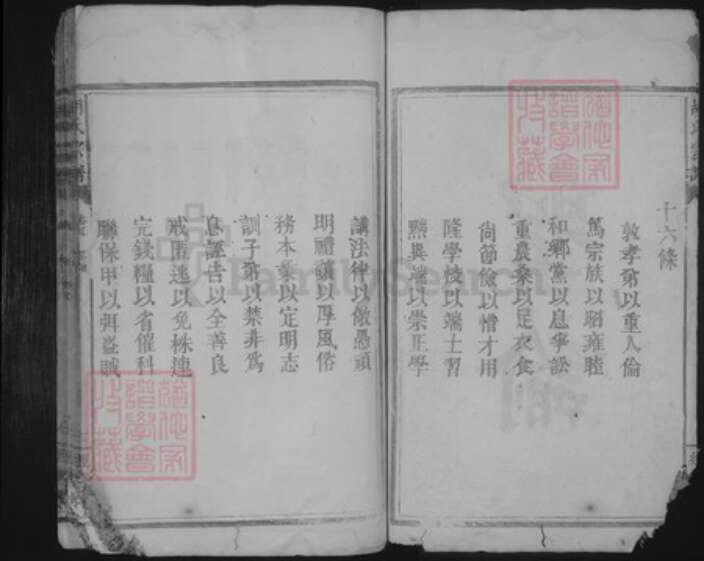 十六條
敦孝弟以重人倫
篤宗族以昭雍睦
和鄉黨以息爭訟
重農桑以足衣食
尚節儉以惜才用
隆學校以端士習
黜異端以崇正學
講法律以儆愚頑
明禮讓以厚風俗
務本業以定明志
訓子弟以禁非為
息誣告以全善良
戒匿逃以免株連
完錢糧以省催科
聯保甲以弭盜賊
FamilySearch